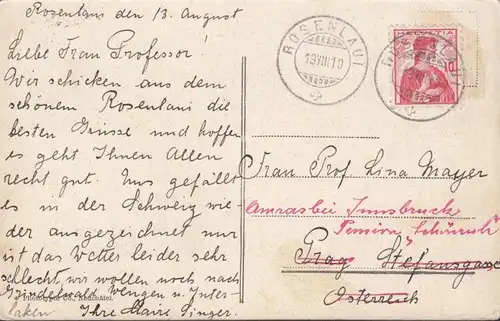 Rosenlaui den 13. August
Liebe Frau Professor!
Wir schicken aus dem
schönem Rosenlaui die
besten Grüsse und hoffen
es geht Ihnen Allen
recht gut. Uns gefällt
es in der Schweiz wie-
der ausgezeichnet nur
ist das Wetter leider sehr
schlecht, wir wollen noch nach
Grindelwald Wengen u. Inter-
laken. Ihre Marie Singer.
Phototypie Co., Neuchâtel.
ROSENLAUI
13.VIII.10
HELVETIA
10
ROSENLAUI
Frau Prof. Lina Mayer
Amras bei Innsbruck
Pension
Prag Stefansgasse
Österreich